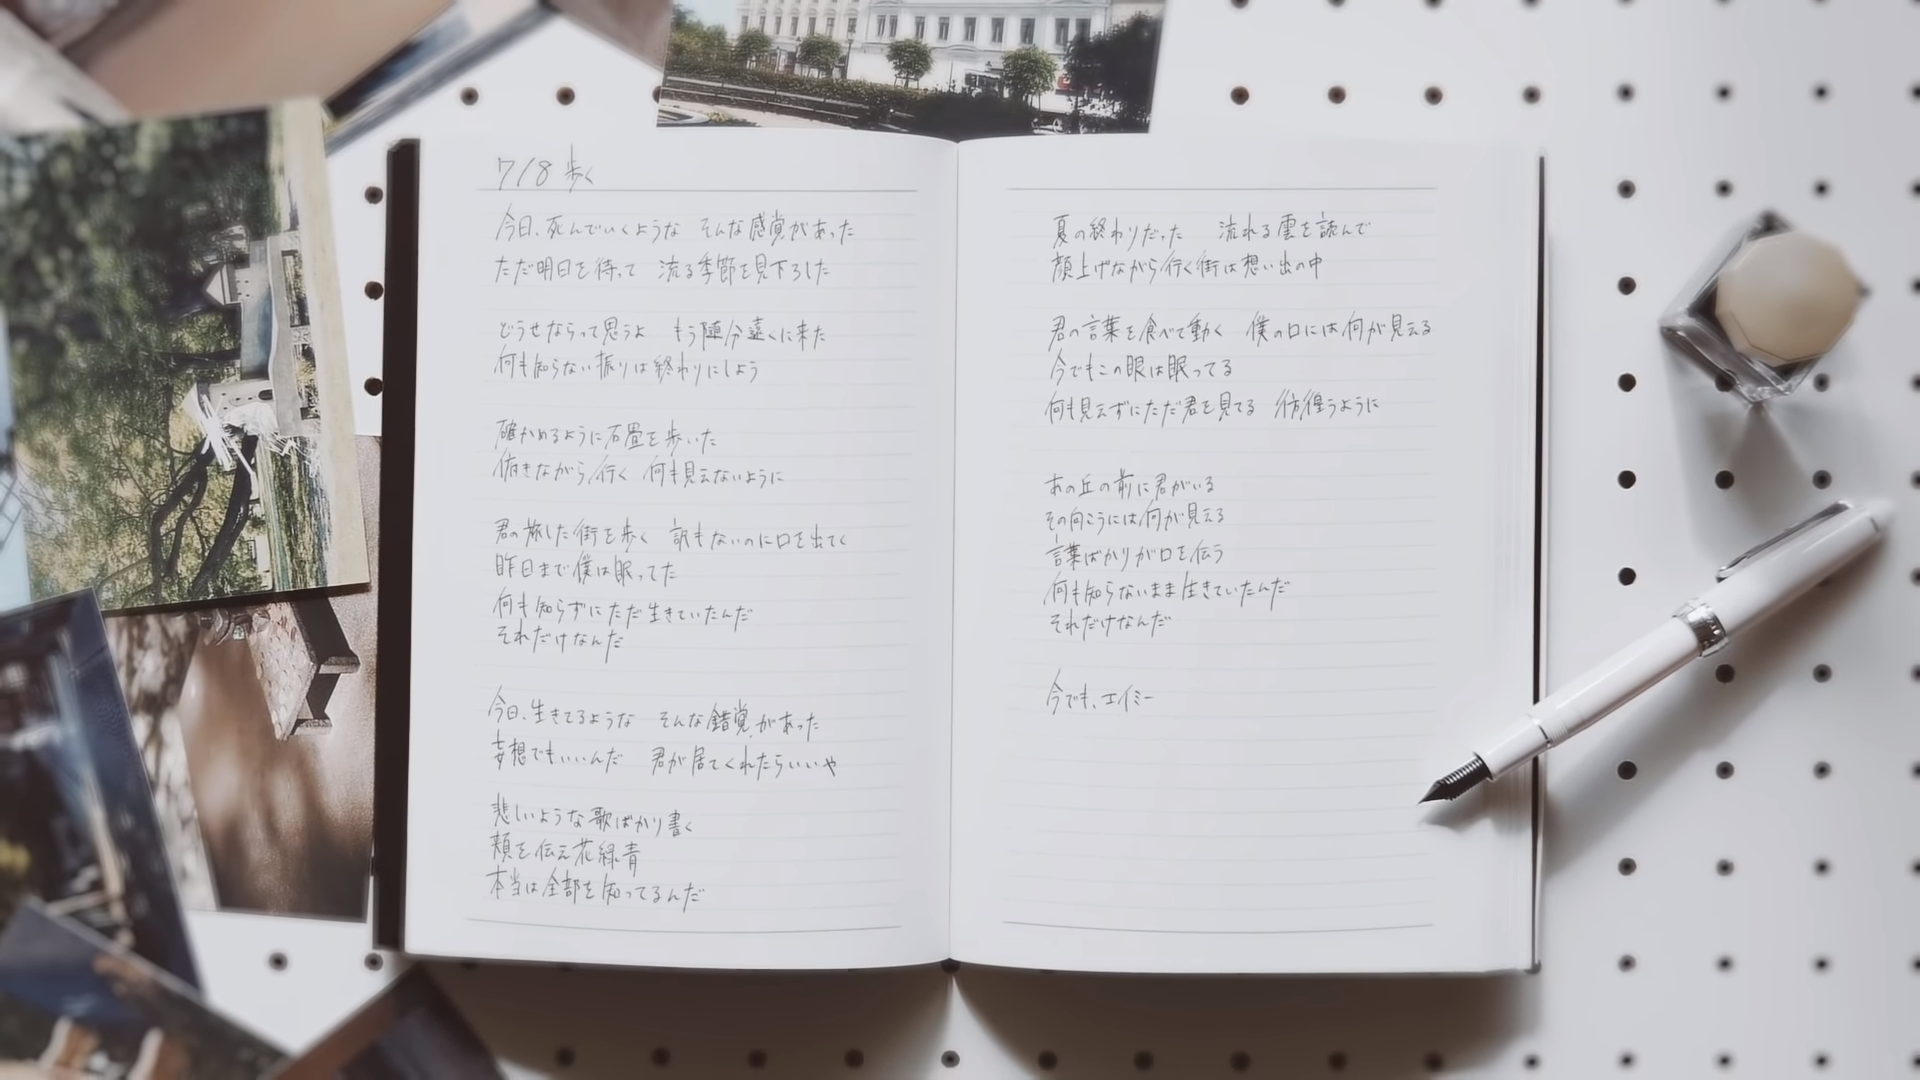 7/8 歩く
今日、死んでいくような そんな感覚があった
ただ明日を待って 流る季節を見下ろした
どうせならって思うよ もう随分遠くに来た
何も知らない振りは終わりにしよう
確かめるように石畳を歩いた
俯きながら行く 何も見えないように
君の旅した街を歩く 訳もないのに口を出てく
昨日まで僕は眠ってた
何も知らずにただ生きていたんだ
それだけなんだ
今日、生きてるような そんな錯覚があった
妄想でもいいんだ 君が居てくれたらいいや
悲しいような歌ばかり書く
頬を伝え花緑青
本当は全部を知ってるんだ
夏の終わりだった 流れる雲を読んで
顔上げながら行く街は想い出の中
君の言葉を食べて動く 僕の口には何が見える
今でもこの眼は眠ってる
何も見えずにただ君を見てる 彷徨うように
あの丘の前に君がいる
その向こうには何が見える
言葉ばかりが口を伝う
何も知らないまま生きていたんだ
それだけなんだ
今でも、エイミー